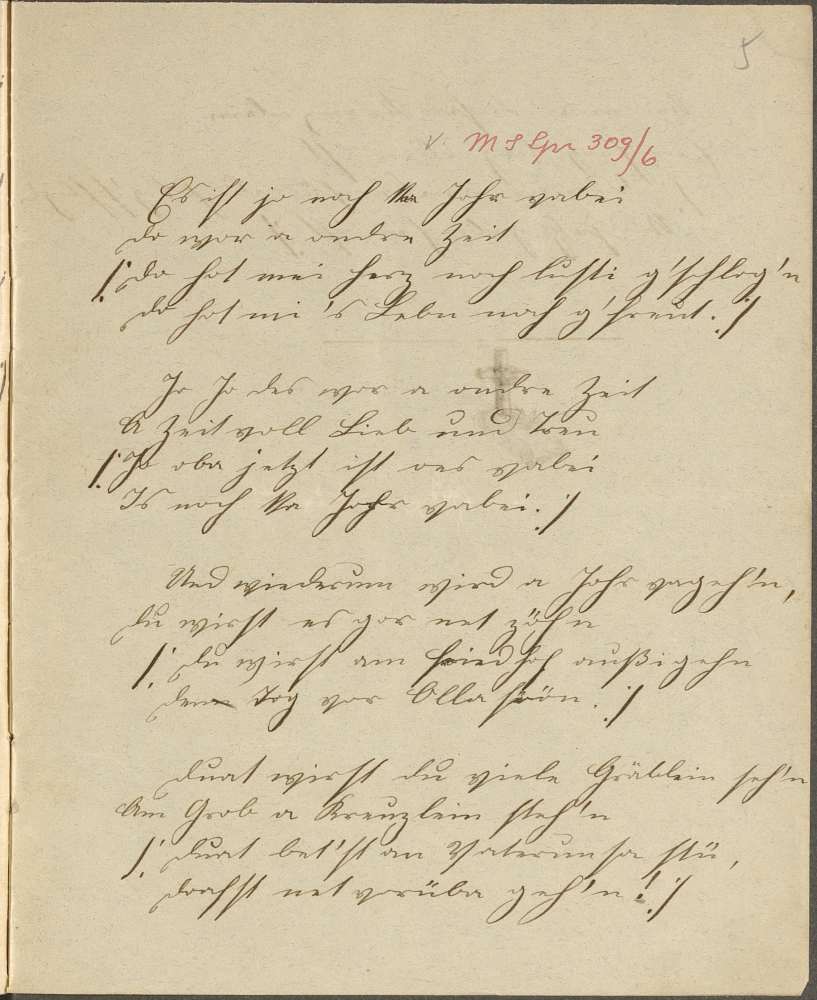 5
V. MS Spr 309/6
Es ist jo noch ka Johr vabei
Do wor a ondre Zeit
/: Do hot mei Herz noch lusti g'schlog'n
Do hot mi 's Lebn noch g'freut. :/
Jo Jo des wor a ondre Zeit
A Zeit voll Lieb und Treu
/: Jo oba jetzt ist ois vabei
Is noch ka Johr vabei. :/
Und wiederum wird a Johr vageh'n,
Du wirst es gor net zöh'n
/: Du wirst am Friedhof außi gehn
Den Tog vor Olla
Duat wirst du viele Gräblein seh'n
Am Grob a Kreuzlein steh'n
/: Duat bet'st an Vaterunsa stü,
Doafst net vorüba geh'n! :/